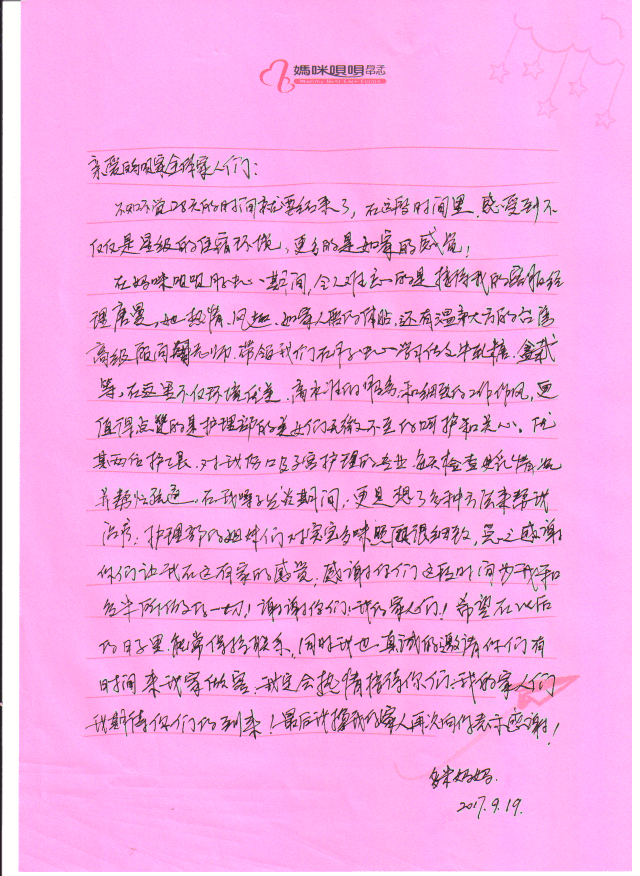 媽咪唄唄
亲爱的唄唄全体家人们：
不知不觉28天的时间就要结束了，在这段时间里，感受到不
仅仅是星级的住宿环境，更多的是如家的感觉！
在妈咪唄唄月子中心期间，令人难忘的是接待我的客服经
理唐曼，她热情、风趣、如家人般的体贴，还有温柔大方的台湾
高级顾问老师，带领我们在月子中心学习做牛轧糖、盆栽
等，在这里不仅环境优美，高水准的服务和细致的工作作风，更
值得点赞的是护理部的美女们无微不至的呵护和关心。尤
其两位护士长，对我伤口及子宫护理的专业，每天检查母乳情况
并帮忙疏通，在我嗓子发炎期间，更是想了多种方法来帮我
治疗；护理部的姐妹们对宝宝多咪照顾很细致，总之感谢
你们让我在这有家的感觉，感谢你们这段时间为我和
多米所做的一切！谢谢你们，我的家人们！希望在以后
的日子里能常保持联系，同时我也真诚的邀请你们有
时间来我家做客，我定会热情接待你们，我的家人们
我期待你们的到来！最后我携我的家人再次向你表示感谢！
多米妈妈.
2017.9.19.